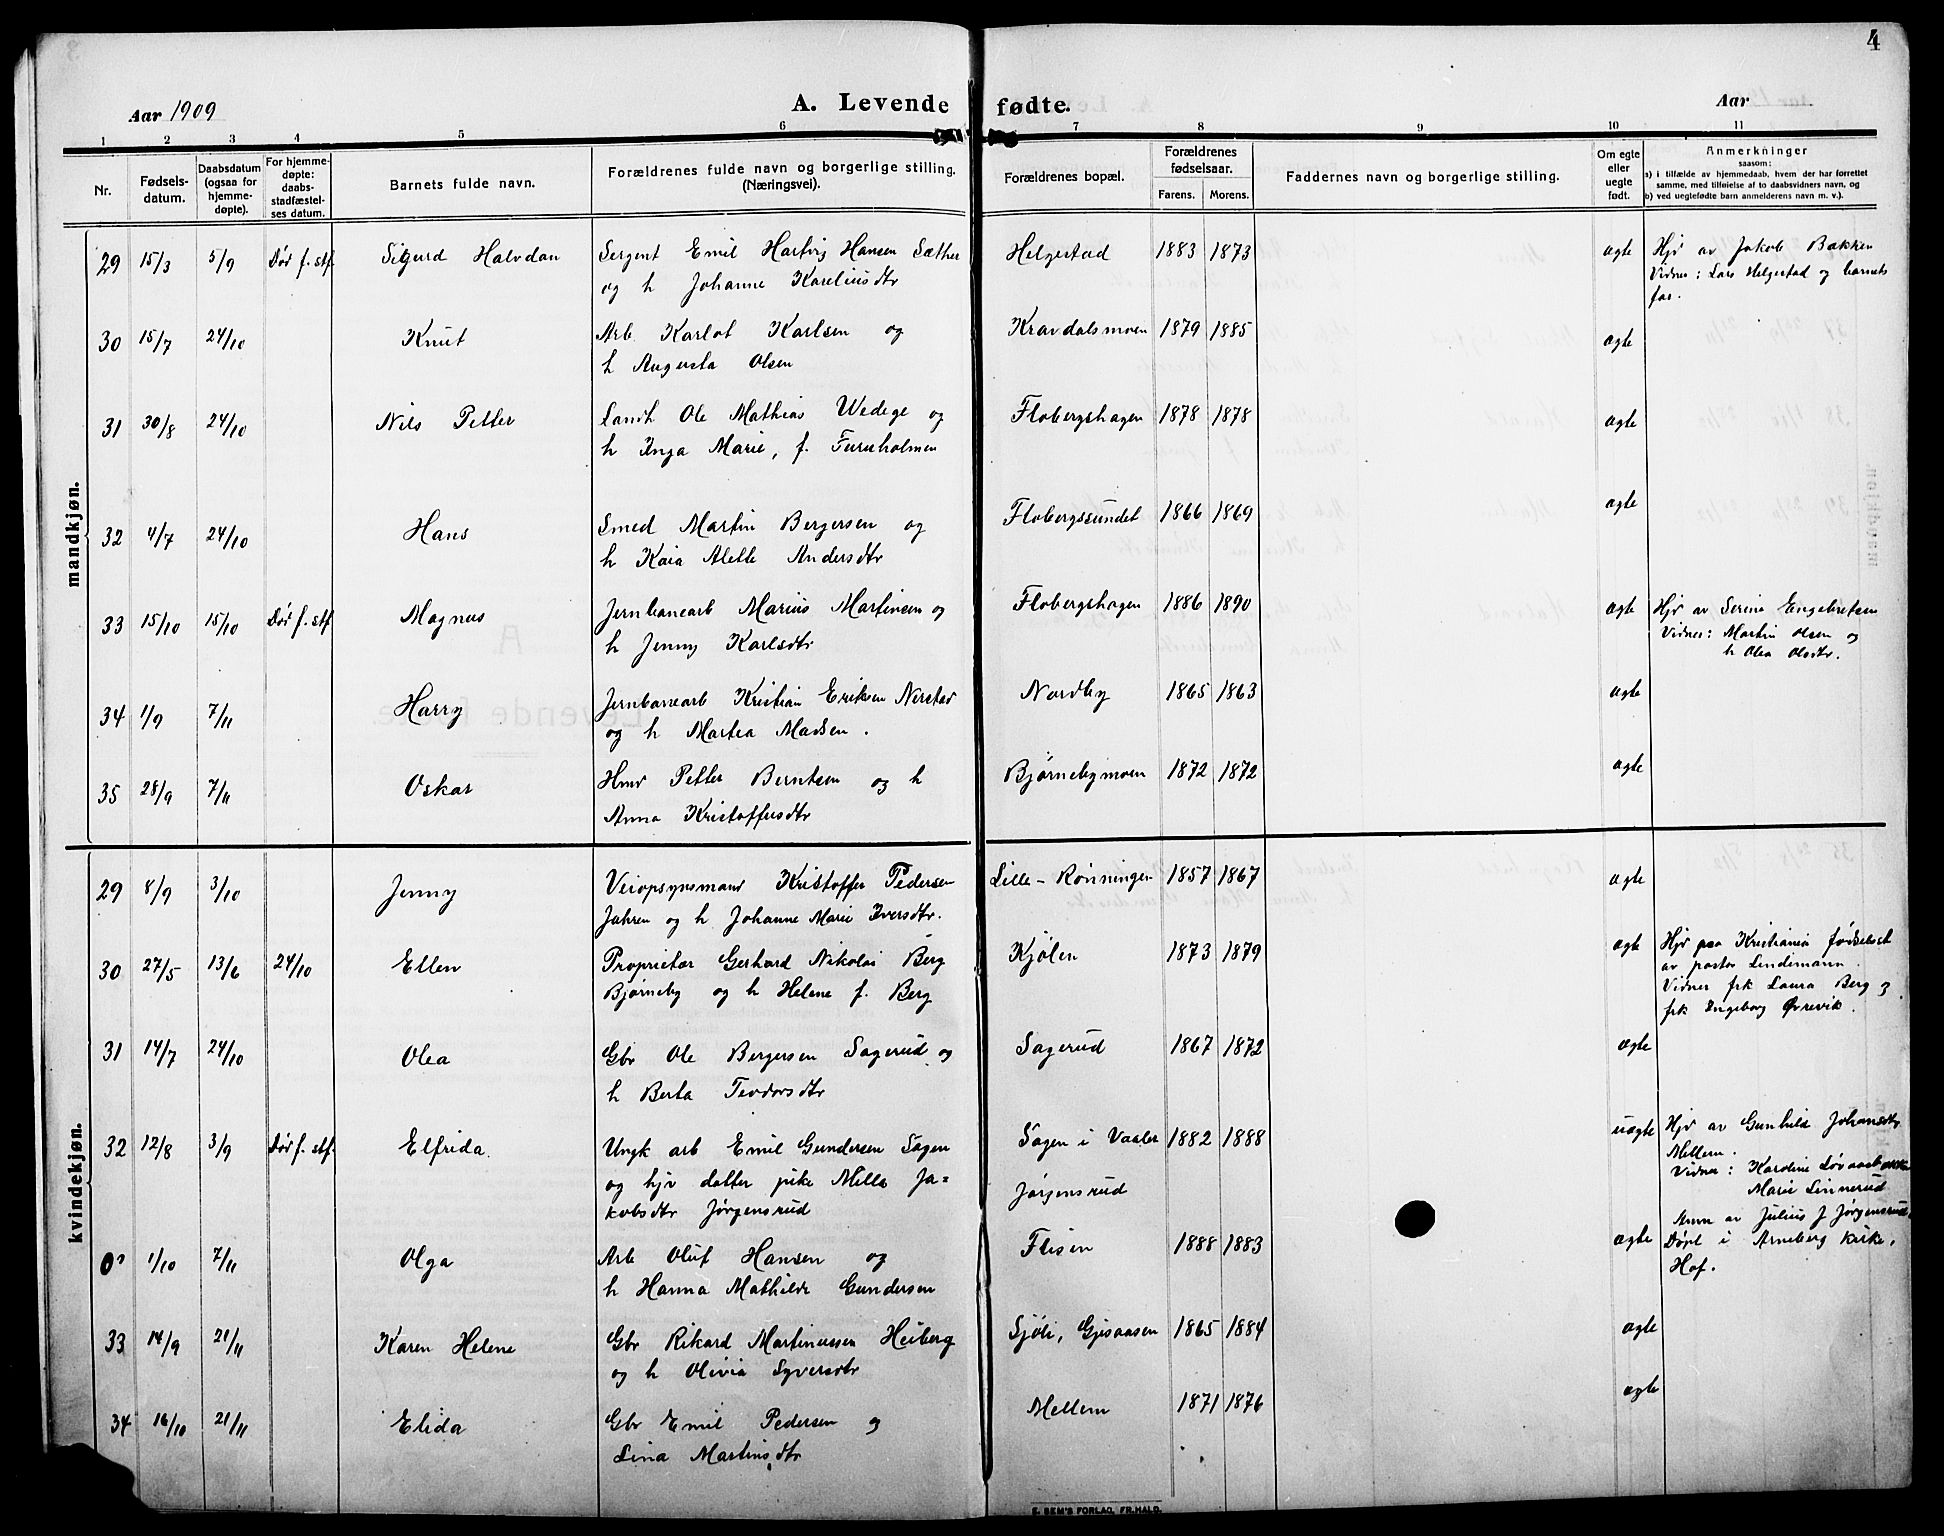 4
Aar 1909
A. Levende fødte.
Aar
1 2 3 4 5 6 7 8 9 10 11
Nr.
Fødsels-
datum.
Daabsdatum
(ogsaa for
hjemme-
døpte).
For hjemme-
døpte:
daabs-
stadfæstel-
ses datum.
Barnets fulde navn.
Forældrenes fulde navn og borgerlige stilling.
(Næringsvei).
Forældrenes bopæl.
Forældrenes
fødselsaar.
Farens. Morens.
Faddernes navn og borgerlige stilling.
Om egte
eller
uegte
født.
Anmerkninger
saasom:
a) i tilfælde av hjemmedaab, hvem der har forrettet
samme, med tilføielse af to daabsvidners navn, og
b) ved uegtefødte barn anmelderens navn m. v.).
mandkjøn.
29 15/3 5/9 Død f. stf. Sigurd Halvdan Sergent Emil Hartvig Hansen Sæther Helgestad 1883 1873 ægte Hjd av Jakob Bakken
og h Johanne Kareliusdtr Vidner: Lars Helgestad og barnets
far.
30 15/7 24/10 Knut Arb Karlot Karlsen og Kravdalsmoen 1879 1885 ægte
h Augusta Olsen
31 30/8 24/10 Nils Petter Landh Ole Mathias Wedege og Flobergshagen 1878 1878 ægte
h Inga Marie, f. Furuholmen
32 4/7 24/10 Hans Smed Martin Bergersen og Flobergssundet 1866 1869 ægte
h Kaia Alette Andersdtr
33 15/10 15/10 Død f. stf. Magnus Jernbanearb Marius Martinsen og Flobergshagen 1886 1890 ægte Hjd av Serine Engebretsen
h Jenny Karlsdtr Vidner: Martin Olsen og
h Olea Olsdtr.
34 1/9 7/11 Harry Jernbanearb Kristian Eriksen Nerstad Nordby 1865 1863 ægte
og h Martea Madsen.
35 28/9 7/11 Oskar Hmd Petter Berntsen og h Bjørnebymoen 1872 1872 ægte
Anna Kristoffersdtr
kvindekjøn.
29 8/9 3/10 Jenny Veiopsynsmand Kristoffer Pedersen Lille-Rønningen 1857 1867 ægte
Jahren og h Johanne Marie Iversdtr.
30 27/5 13/6 24/10 Ellen Proprietær Gerhard Nikolai Berg Kjølen 1873 1879 ægte Hjd paa Kristiania fødselsst
Bjørneby og h Helene f. Berg av pastor Lindemann.
Vidner frk Laura Berg og
frk Ingeborg Øvrevik.
31 14/7 24/10 Olea Gbr Ole Bergersen Sagerud og Sagerud 1867 1872 ægte
h Berta Teodorsdtr
32 12/8 3/9 Død f. stf. Elfrida Ungk arb Emil Gundersen Sagen Sagen i Vaaler 1882 1888 uægte Hjd av Gunhild Johansdtr
og hjv datter pike Milla Ja= Jørgensrud Mellem.
kobsdtr Jørgensrud Vidner: Karoline
Marie Linnerud
Anm av Julius J Jørgensrud.
1/10 7/11 Olga Arb Oluf Hansen og Flisen 1888 1883 ægte Døpt i Arneberg kirke,
h Hanna Mathilde Gundersen Hof.
33 14/9 21/11 Karen Helene Gbr Rikard Martinussen Heiberg Sjøli, Gjesaasen 1865 1884 ægte
og h Olivia Syversdtr
34 16/10 21/11 Elida Gbr Emil Pedersen og Mellem 1871 1876 ægte
Lina Martinsdtr
E. SEM'S FORLAG, FR.HALD.